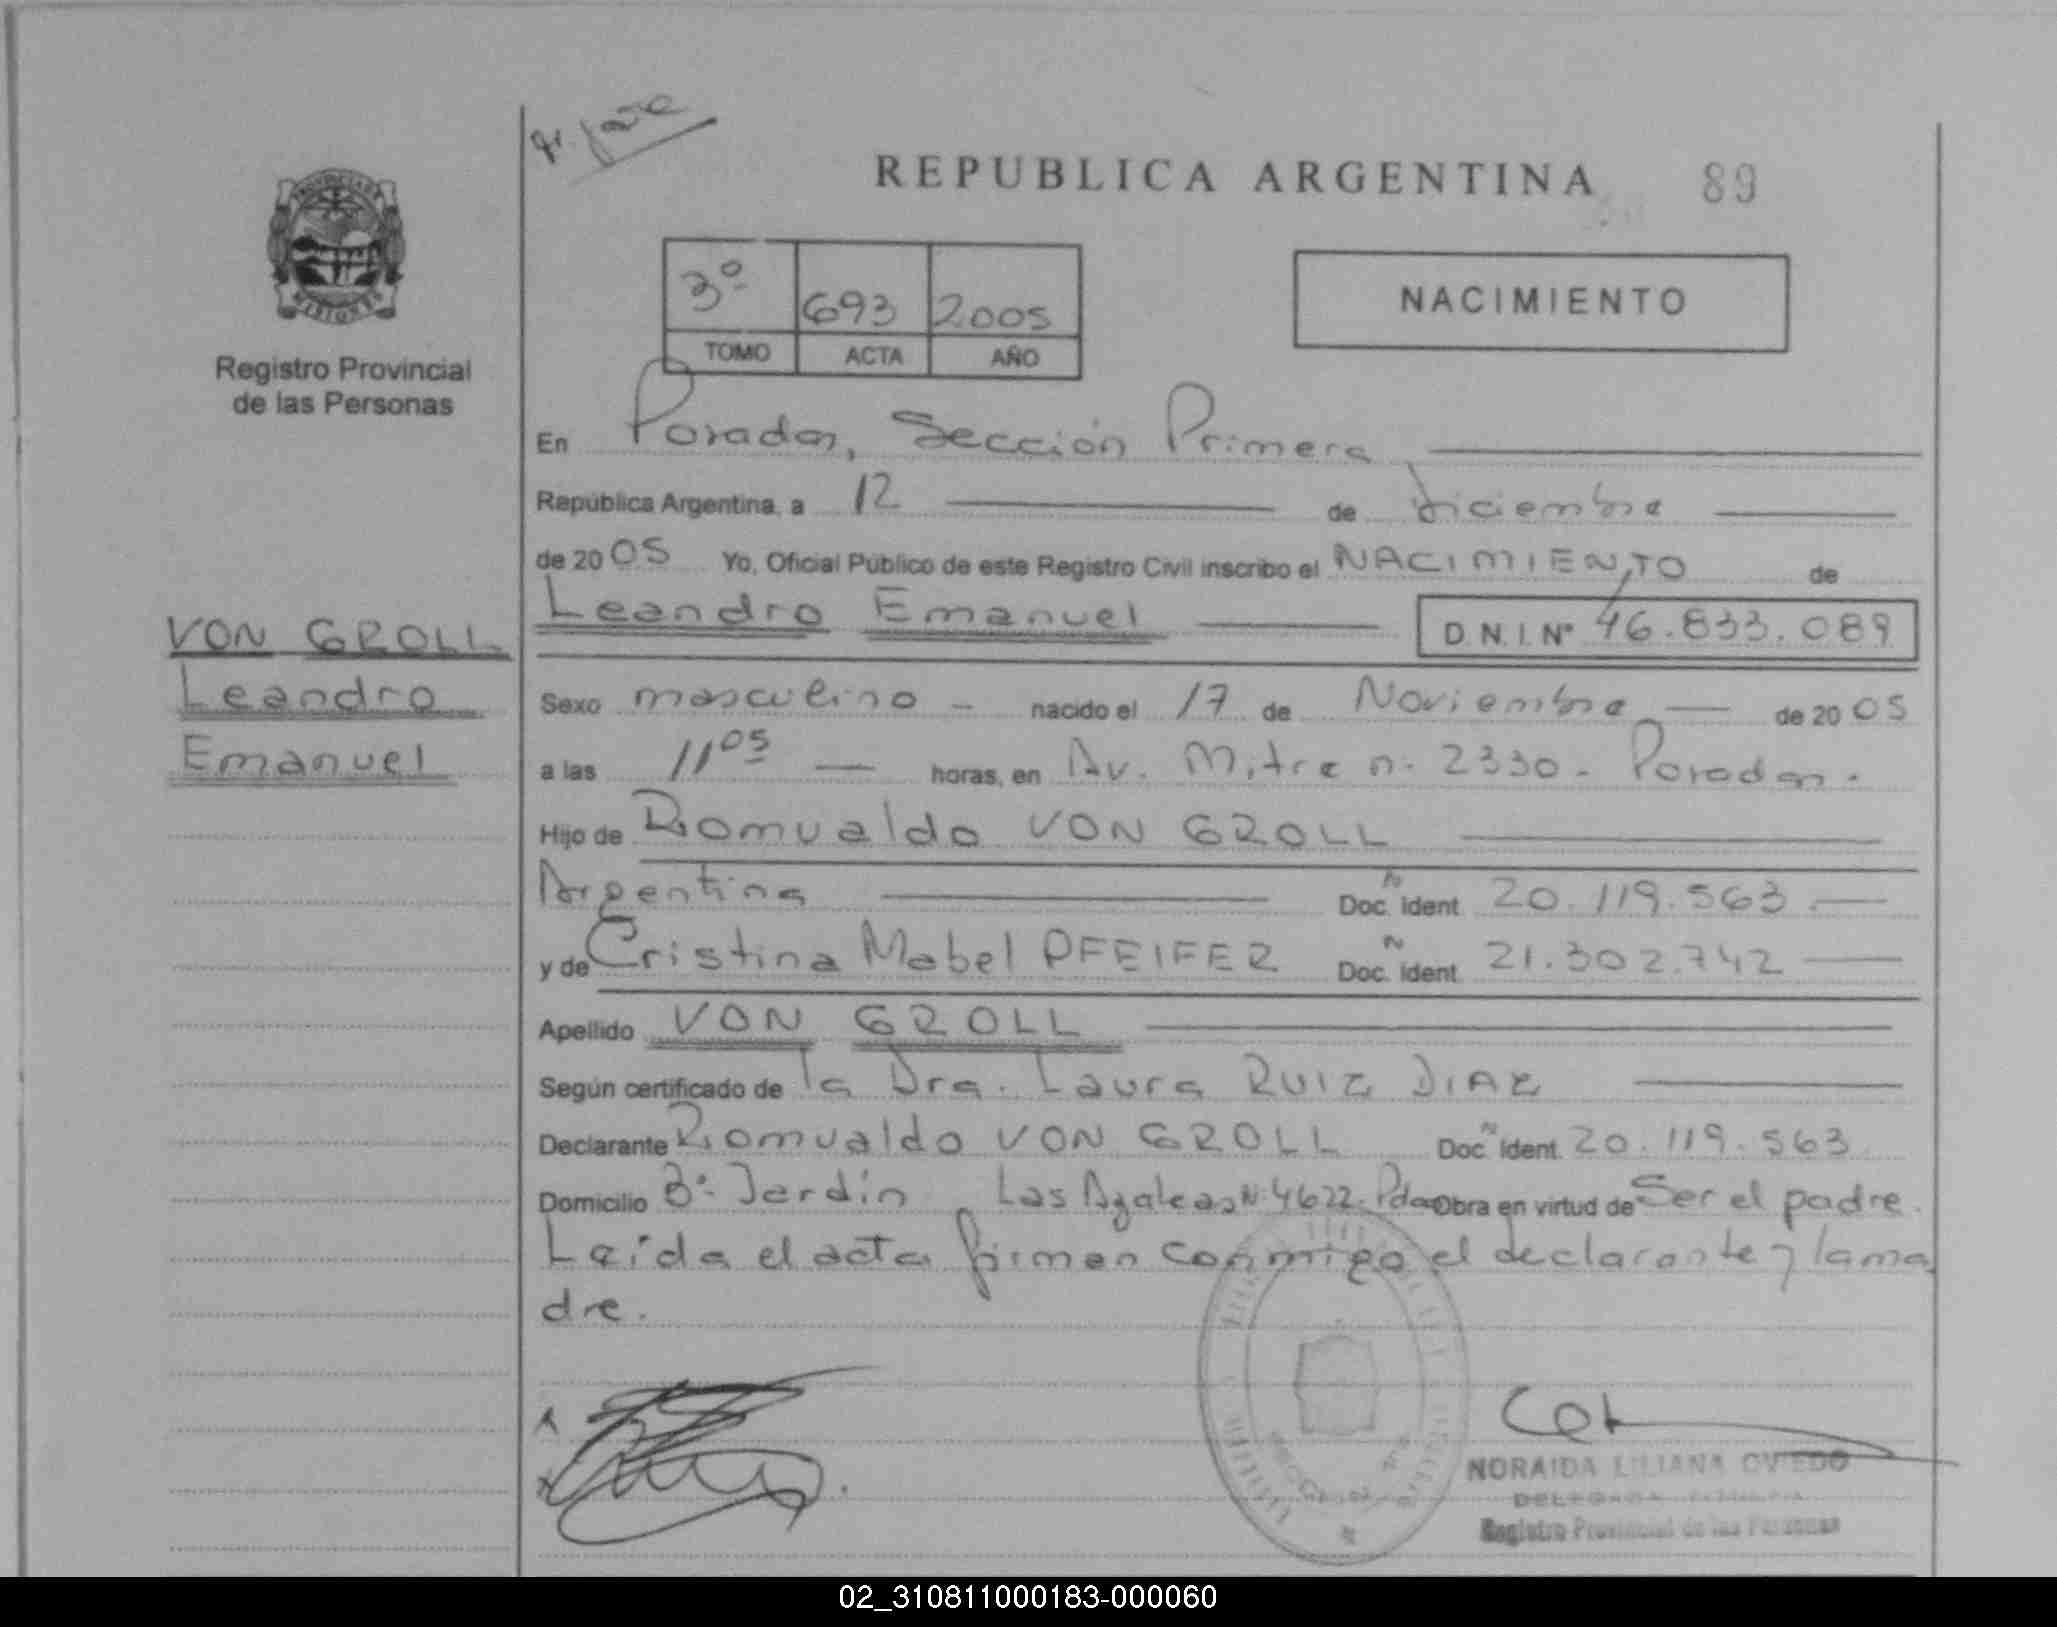 REPUBLICA ARGENTINA 89
PROVINCIA DE
MISIONES
Registro Provincial
de las Personas
3º 693 2005
TOMO ACTA AÑO
NACIMIENTO
En Posadas, Sección Primera
República Argentina, a 12 de diciembre
de 20 05 Yo, Oficial Público de este Registro Civil inscribo el NACIMIENTO de
Leandro Emanuel D.N.I. Nº 46.833.089
VON GROLL
Leandro
Emanuel
Sexo masculino - nacido el 17 de Noviembre de 20 05
a las 11 05 horas, en Av. Mitre n. 2330. Posadas.
Hijo de Romualdo VON GROLL
Argentina Doc. Ident. 20.119.563
y de Cristina Mabel PFEIFER Doc. Ident. 21.302.742
Apellido VON GROLL
Según certificado de la Dra. Laura RUIZ DIAZ
Declarante Romualdo VON GROLL Doc. Ident. 20.119.563
Domicilio Bº Jardín Las Azaleas Nº 4622. Pdas Obra en virtud de Ser el padre.
Leída el acta firman conmigo el declarante y la ma
dre.
NORAIDA LILIANA OVIEDO
Registro Provincial de las Personas
02_310811000183-000060